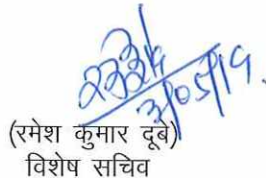 31/05/19
(रमेश कुमार दूबे)
विशेष सचिव